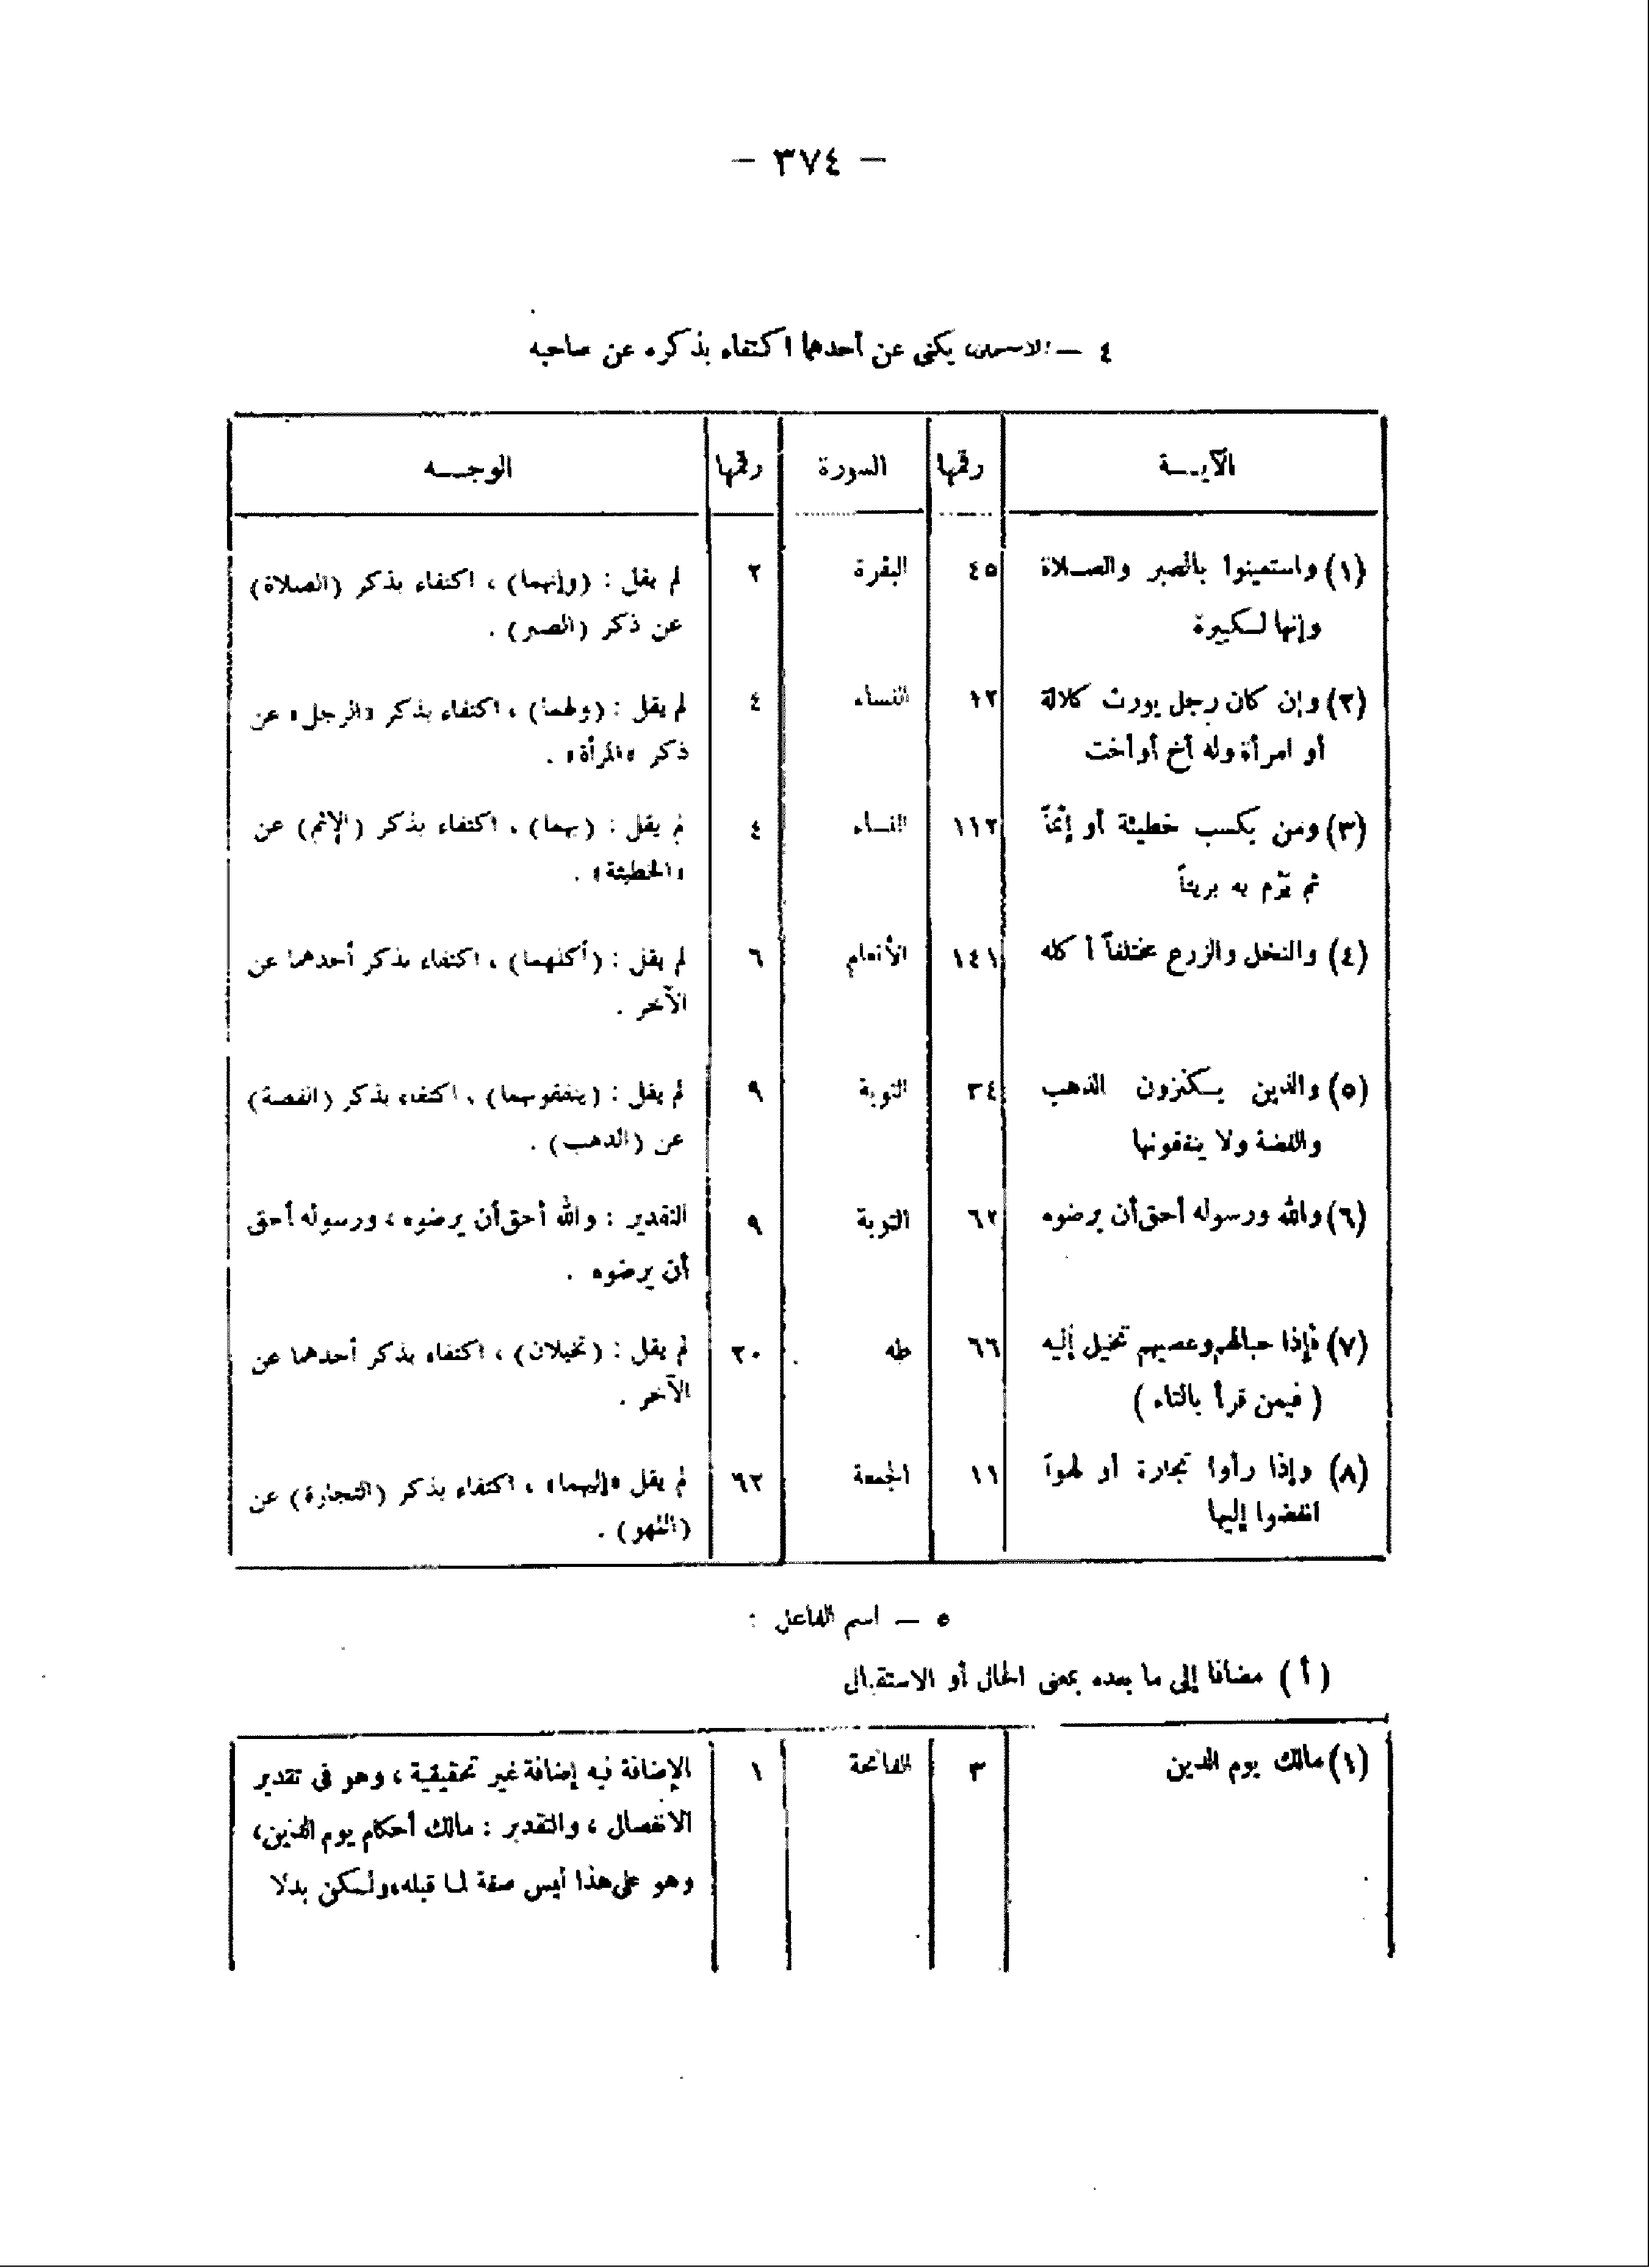 — ٣٧٤ —
٤ — الاسمان، يكنى عن أحدهما اكتفاء بذكره عن صاحبه
الآيــة رقمها السورة رقمها الوجــه
(١) واستعينوا بالصبر والصــلاة ٤٥ البقرة ٢ لم يقل : (وإنهما) ، اكتفاء بذكر (الصلاة)
وإنها لــكبيرة عن ذكر (الصبر) .
(٢) وإن كان رجل يورث كلالة ١٢ النساء ٤ لم يقل : (ولهما) ، اكتفاء بذكر «الرجل» عن
أو امرأة وله أخ أو أخت ذكر «المرأة» .
(٣) ومن يكسب خطيئة أو إثماً ١١٢ النساء ٤ لم يقل : (بهما) ، اكتفاء بذكر (الإثم) عن
ثم يرْم به بريئاً «الخطيئة» .
(٤) والنخل والزرع مختلفاً أكله ١٤١ الأنعام ٦ لم يقل : (أكلهما) ، اكتفاء بذكر أحدهما عن
الآخر .
(٥) والذين يــكنزون الذهب ٣٤ التوبة ٩ لم يقل : (ينفقونهما) ، اكتفاء بذكر (الفضة)
والفضة ولا ينفقونها عن (الذهب) .
(٦) والله ورسوله أحق أن يرضوه ٦٢ التوبة ٩ التقدير : والله أحق أن يرضوه ، ورسوله أحق
أن يرضوه .
(٧) فإذا حبالهم وعصيهم تخيل إليه ٦٦ طه ٢٠ لم يقل : (تخيلان) ، اكتفاء بذكر أحدهما عن
( فيمن قرأ بالتاء ) الآخر .
(٨) وإذا رأوا تجارة أو لهواً ١١ الجمعة ٦٢ لم يقل «إليهما» ، اكتفاء بذكر (التجارة) عن
انفضوا إليها (اللهو) .
٥ — اسم الفاعل :
( أ ) مضافا إلى ما بعده بمعنى الحال أو الاستقبال
(١) مالك يوم الدين ٣ الفاتحة ١ الإضافة فيه إضافة غير تحقيقية ، وهو فى تقدير
الانفصال ، والتقدير : مالك أحكام يوم الدين،
وهو على هذا ليس صفة لما قبله، ولــكن بدلا